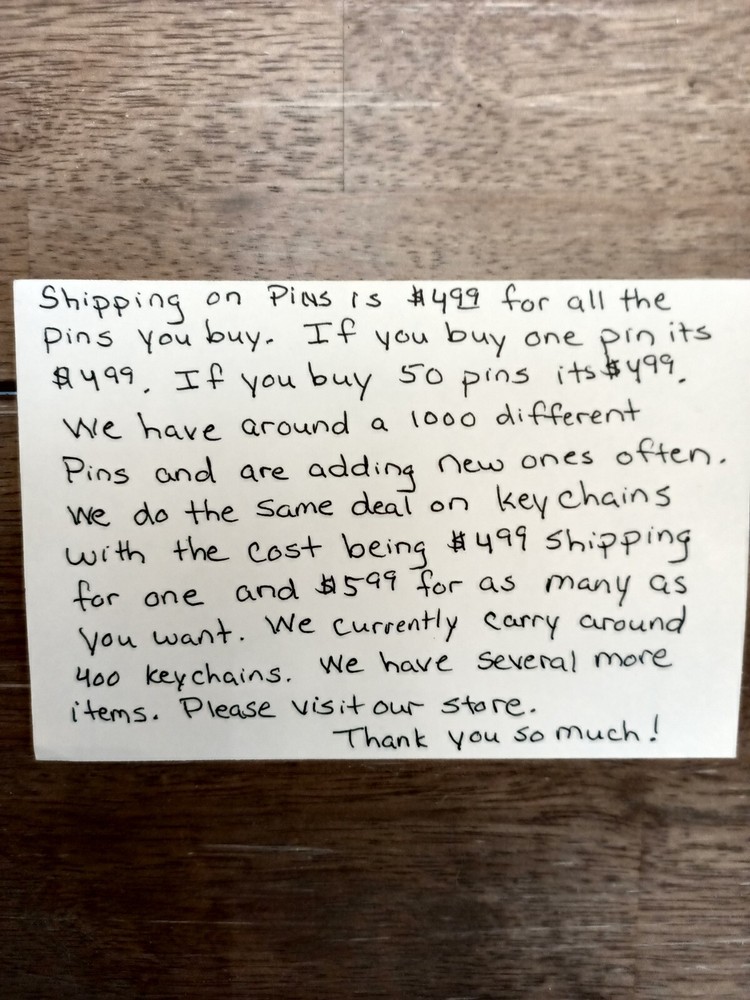 Shipping on Pins is $499 for all the
pins you buy. If you buy one pin its
$499. If you buy 50 pins its $499.
We have around a 1000 different
Pins and are adding new ones often.
We do the same deal on keychains
with the cost being $499 shipping
for one and $599 for as many as
you want. We currently carry around
400 keychains. We have several more
items. Please visit our store.
Thank you so much!